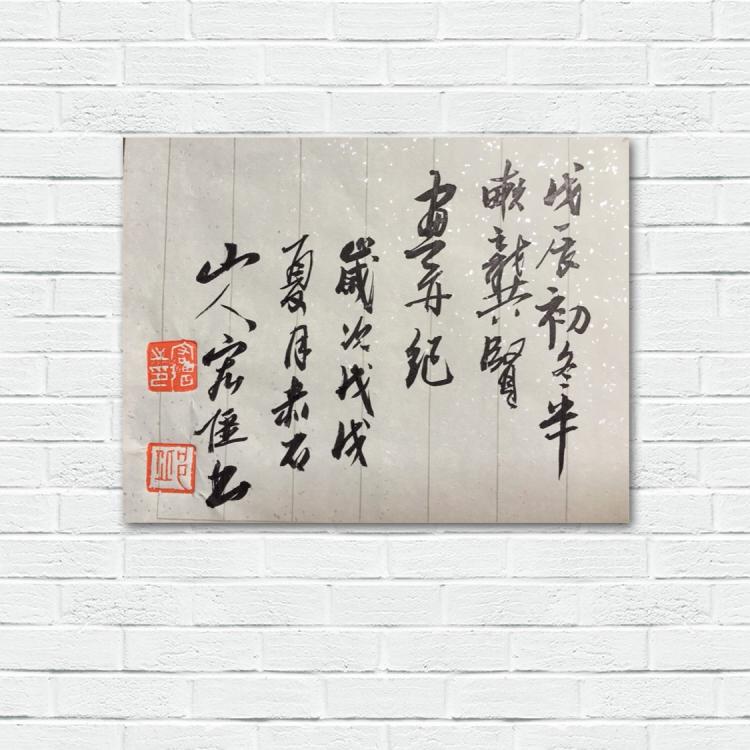 戊辰初冬半
畝龔賢
畫并紀
歲次戊戌
夏月赤石
山人宏書